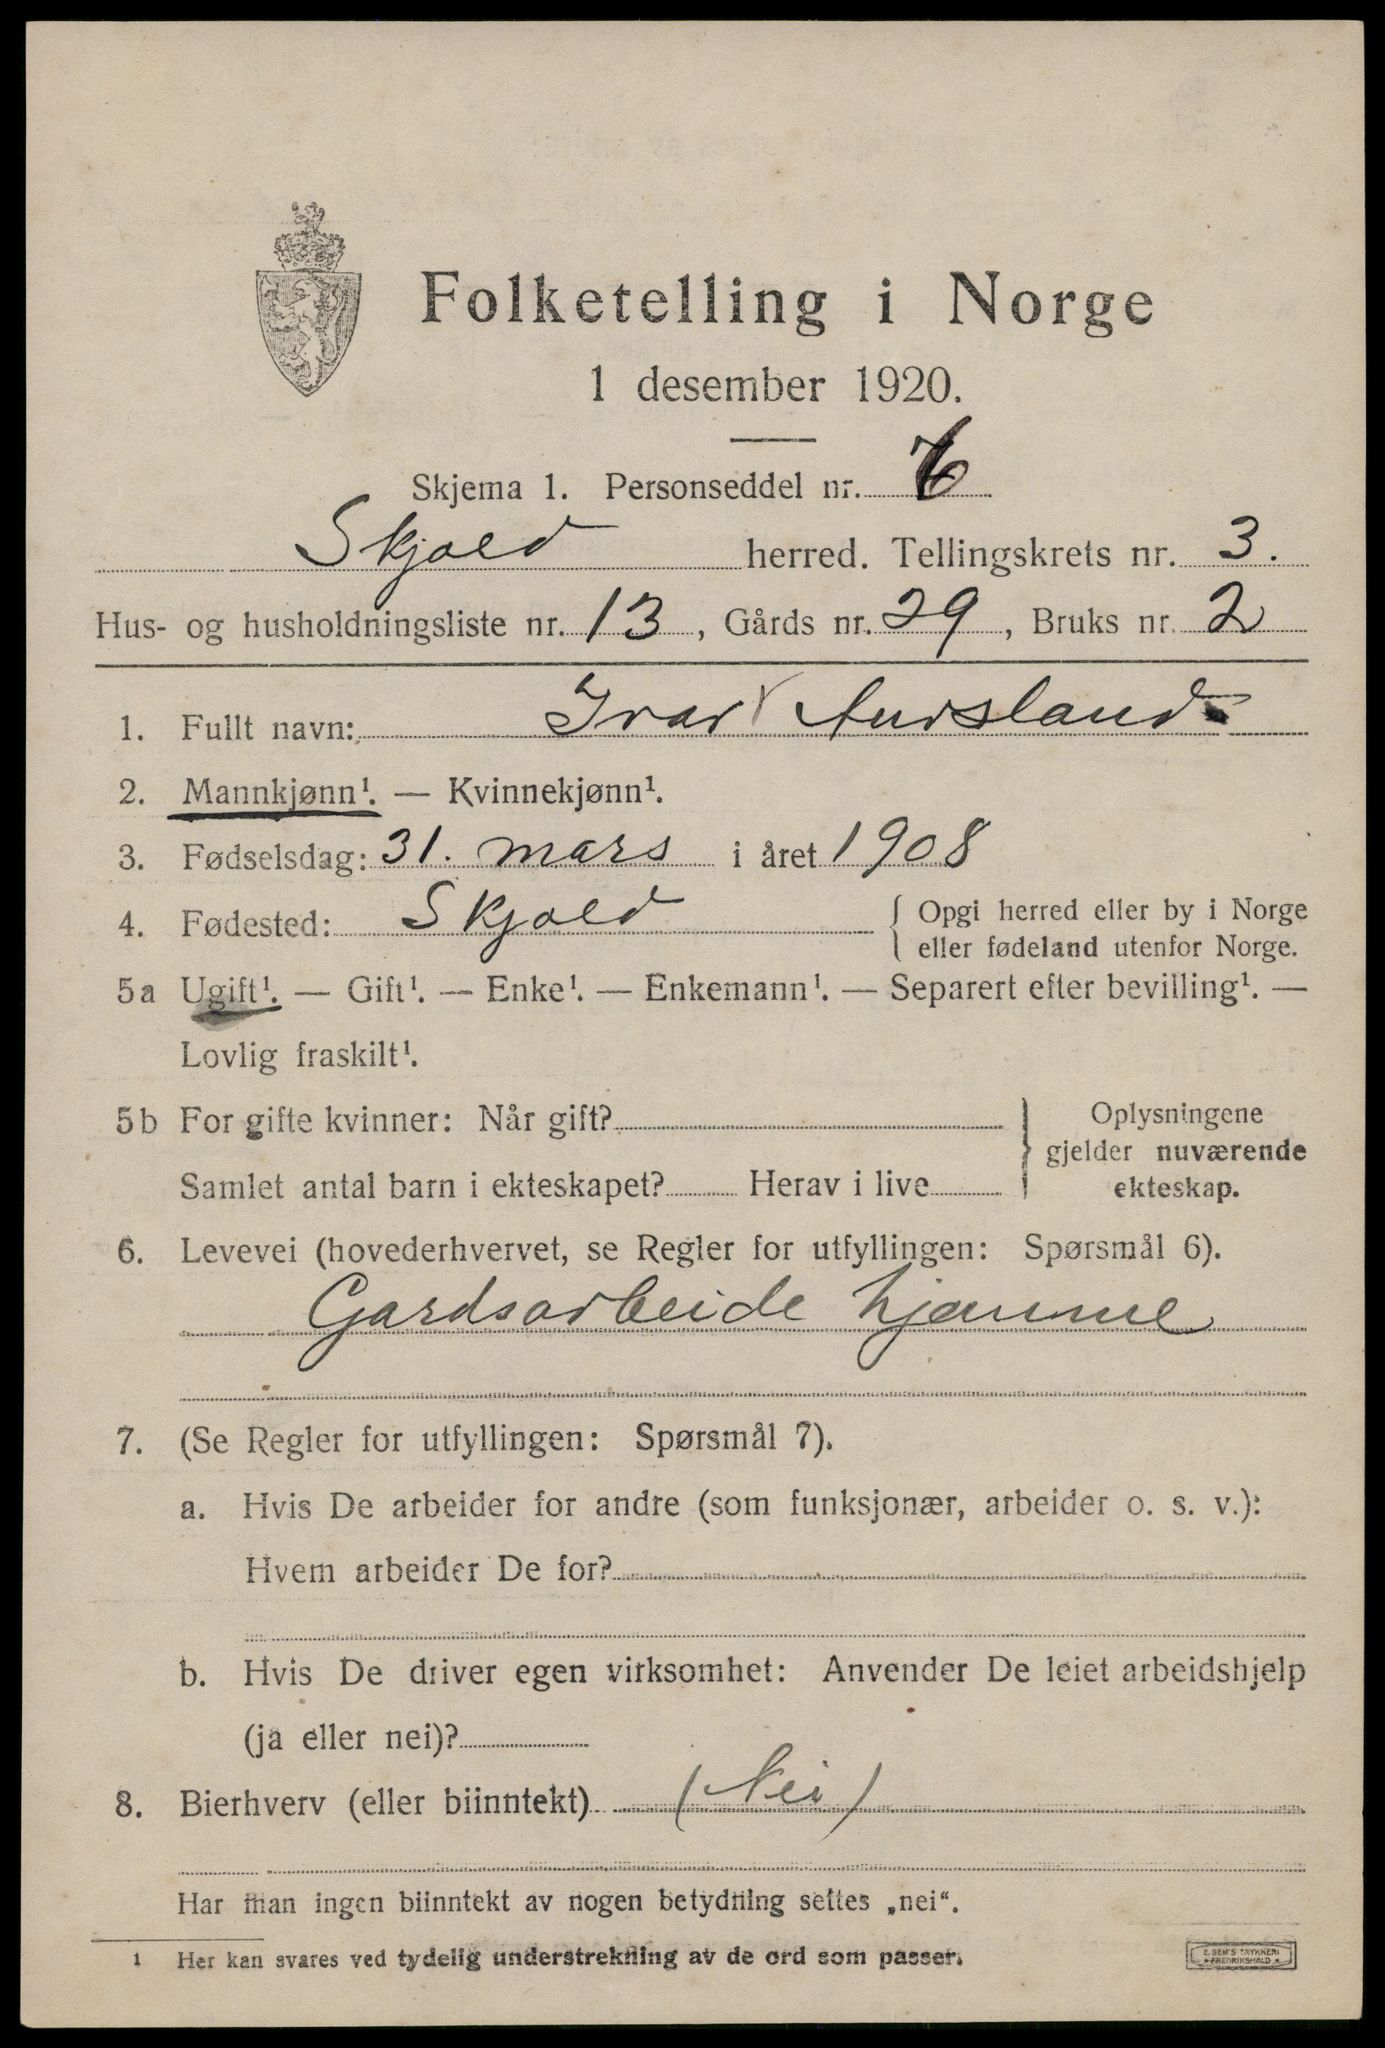 Folketelling i Norge
1 desember 1920.
Skjema 1. Personseddel nr. 6
Skjold herred. Tellingskrets nr. 3.
Hus- og husholdningsliste nr. 13, Gårds nr. 29, Bruks nr. 2
1. Fullt navn: Ivar Aursland
2. Mannkjønn¹. — Kvinnekjønn¹.
3. Fødselsdag: 31. mars i året 1908
4. Fødested: Skjold { Opgi herred eller by i Norge
eller fødeland utenfor Norge.
5a Ugift¹. — Gift¹. — Enke¹. — Enkemann¹. — Separert efter bevilling¹. —
Lovlig fraskilt¹.
5b For gifte kvinner: Når gift?
Samlet antal barn i ekteskapet? Herav i live
Oplysningene
gjelder nuværende
ekteskap.
6. Levevei (hovederhvervet, se Regler for utfyllingen: Spørsmål 6).
Gardsarbeide hjemme
7. (Se Regler for utfyllingen: Spørsmål 7).
a. Hvis De arbeider for andre (som funksjonær, arbeider o. s. v.):
Hvem arbeider De for?
b. Hvis De driver egen virksomhet: Anvender De leiet arbeidshjelp
(ja eller nei)?
8. Bierhverv (eller biinntekt) (Nei)
Har man ingen biinntekt av nogen betydning settes „nei“.
1 Her kan svares ved tydelig understrekning av de ord som passer.
E. SEM'S TRYKKERI
FREDRIKSHALD